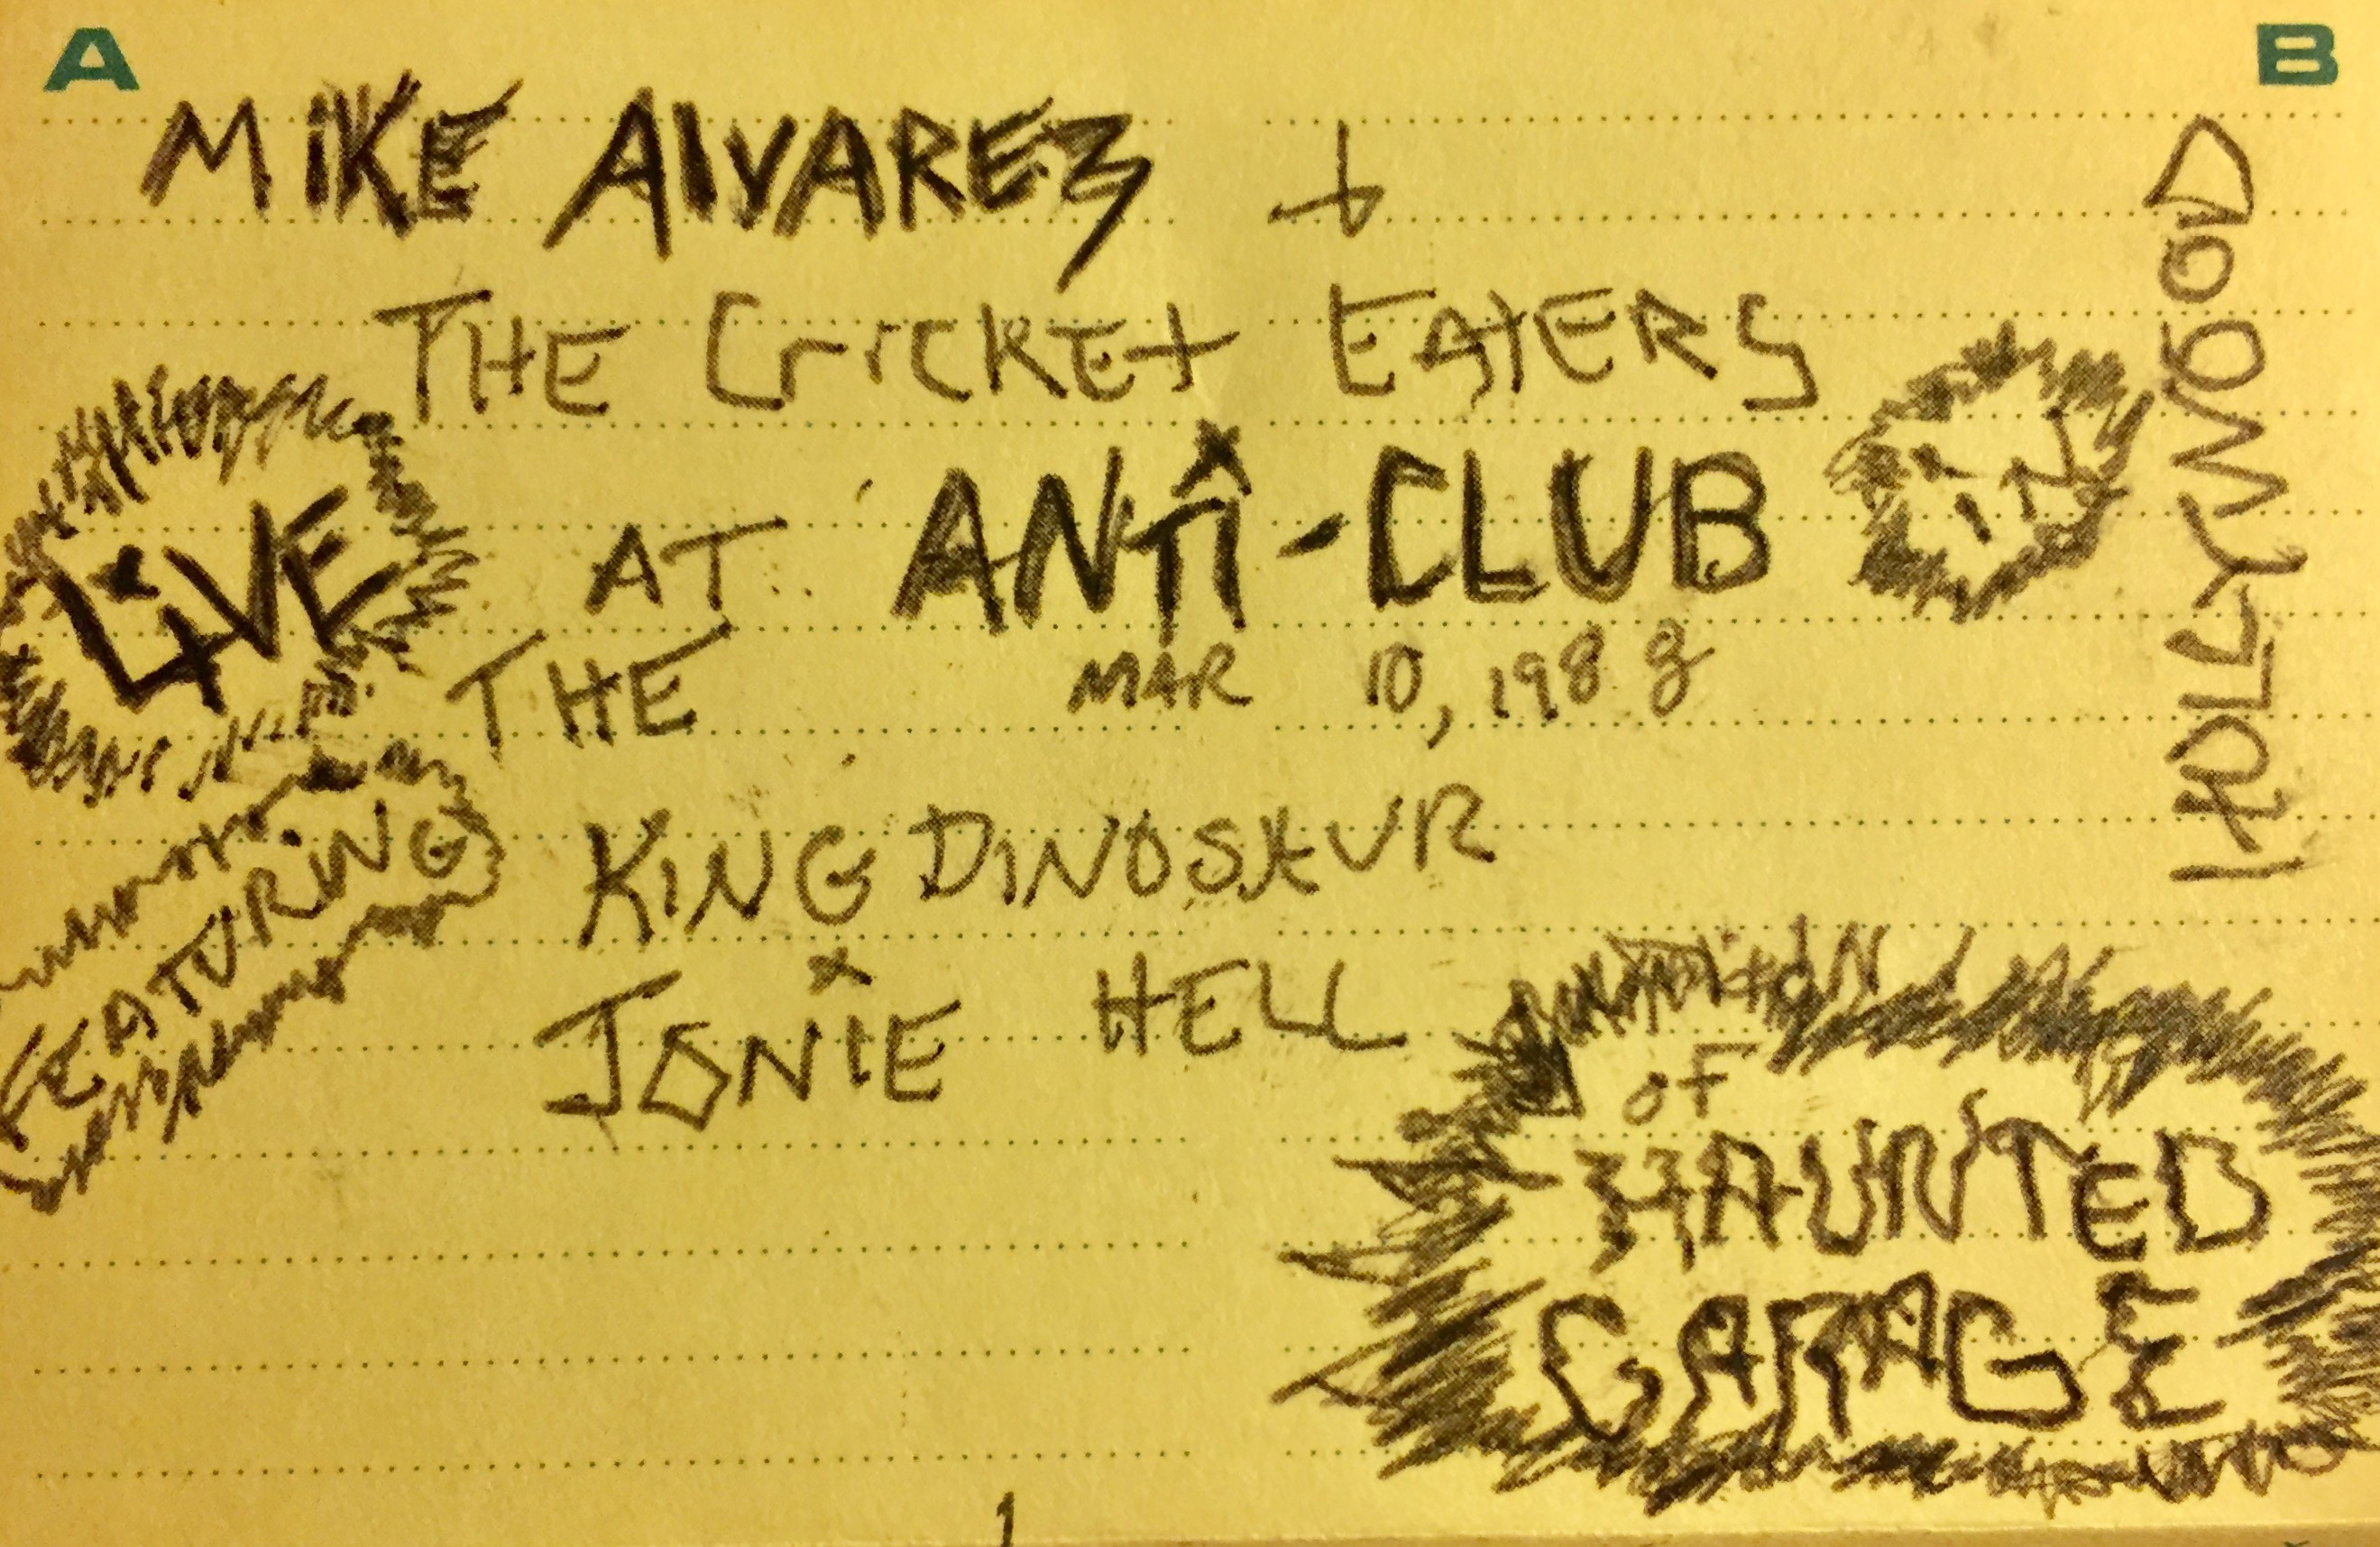 A B
MIKE AlVAREZ +
THE CrICKET EATERS
LiVE AT ANTi-CLUB iN HOLLYWOOD
THE MAR 10, 1988
FEATURING KiNG DINOSAUR
JONiE HELL
oF
HAUNTED
GARAGE